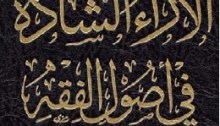 الآراء الشاذة
في أصول الفقه